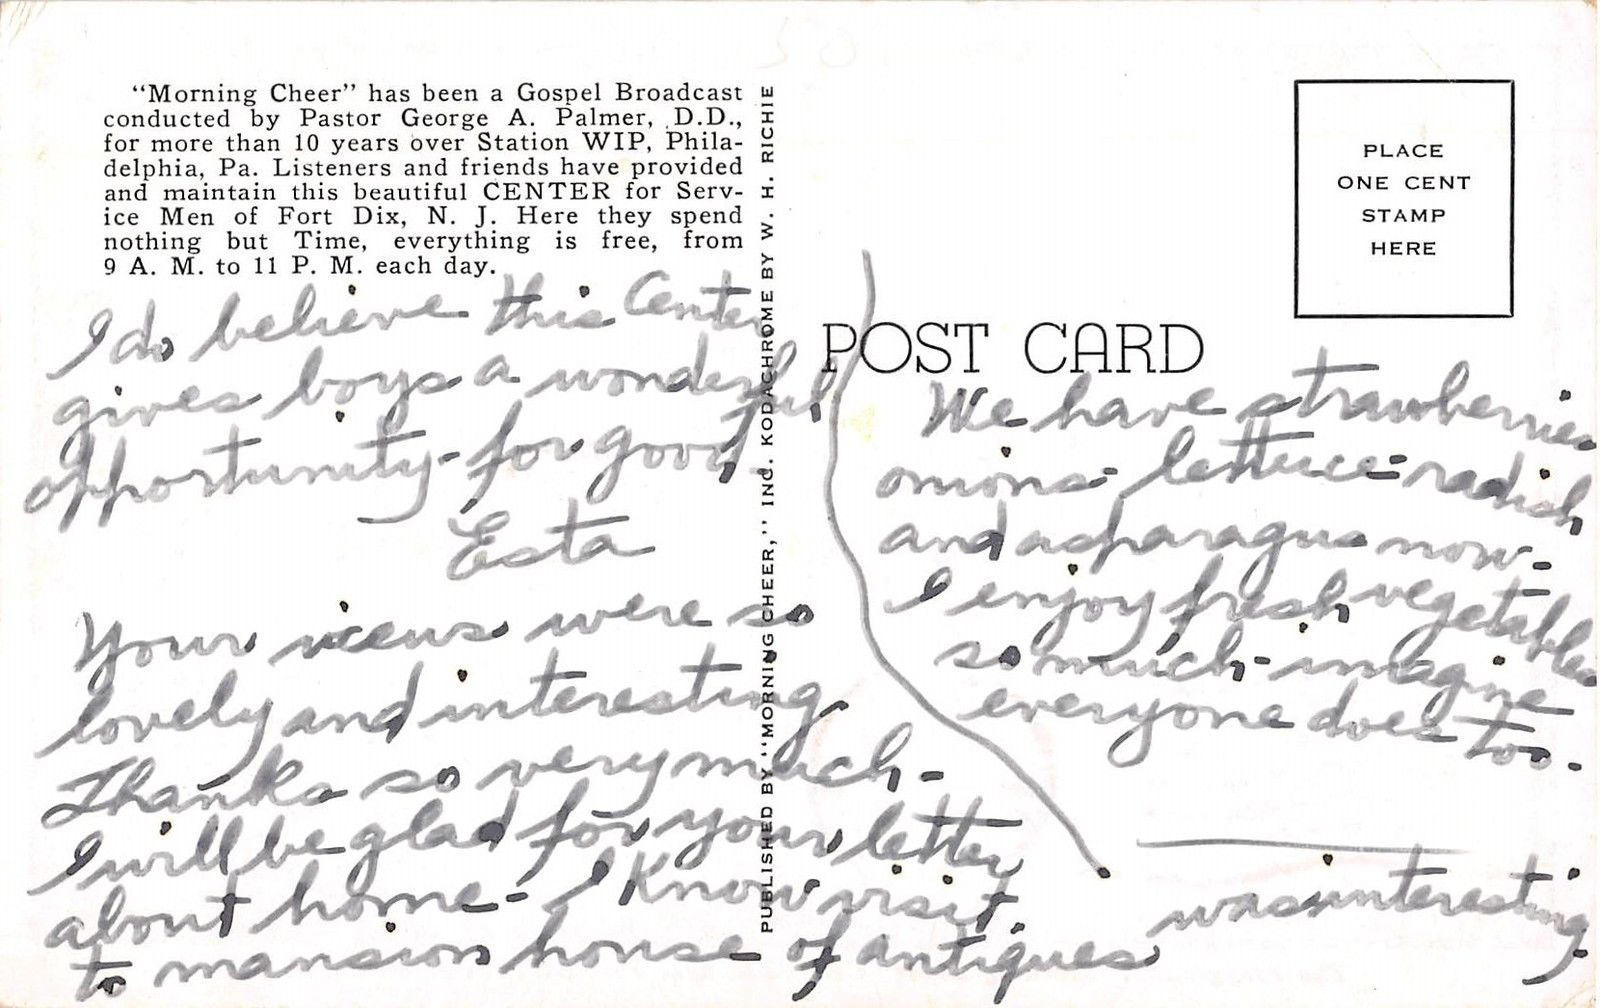 "Morning Cheer" has been a Gospel Broadcast
conducted by Pastor George A. Palmer, D.D.,
for more than 10 years over Station WIP, Phila-
delphia, Pa. Listeners and friends have provided
and maintain this beautiful CENTER for Serv-
ice Men of Fort Dix, N. J. Here they spend
nothing but Time, everything is free, from
9 A. M. to 11 P. M. each day.
I do believe this Center
gives boys a wonderful
opportunity - for good,
Esta
Your views were so
lovely and interesting
Thanks so very much -
I will be glad for your letter
about home - I Know visit
to mansion house of antiques
was interesting.
PUBLISHED BY "MORNING CHEER," INC. KODACHROME BY W. H. RICHIE
PLACE
ONE CENT
STAMP
HERE
POST CARD
We have strawberries
onions - lettuce - radish
and asparagus now -
I enjoy fresh vegetables
so much - imagine
everyone does too.